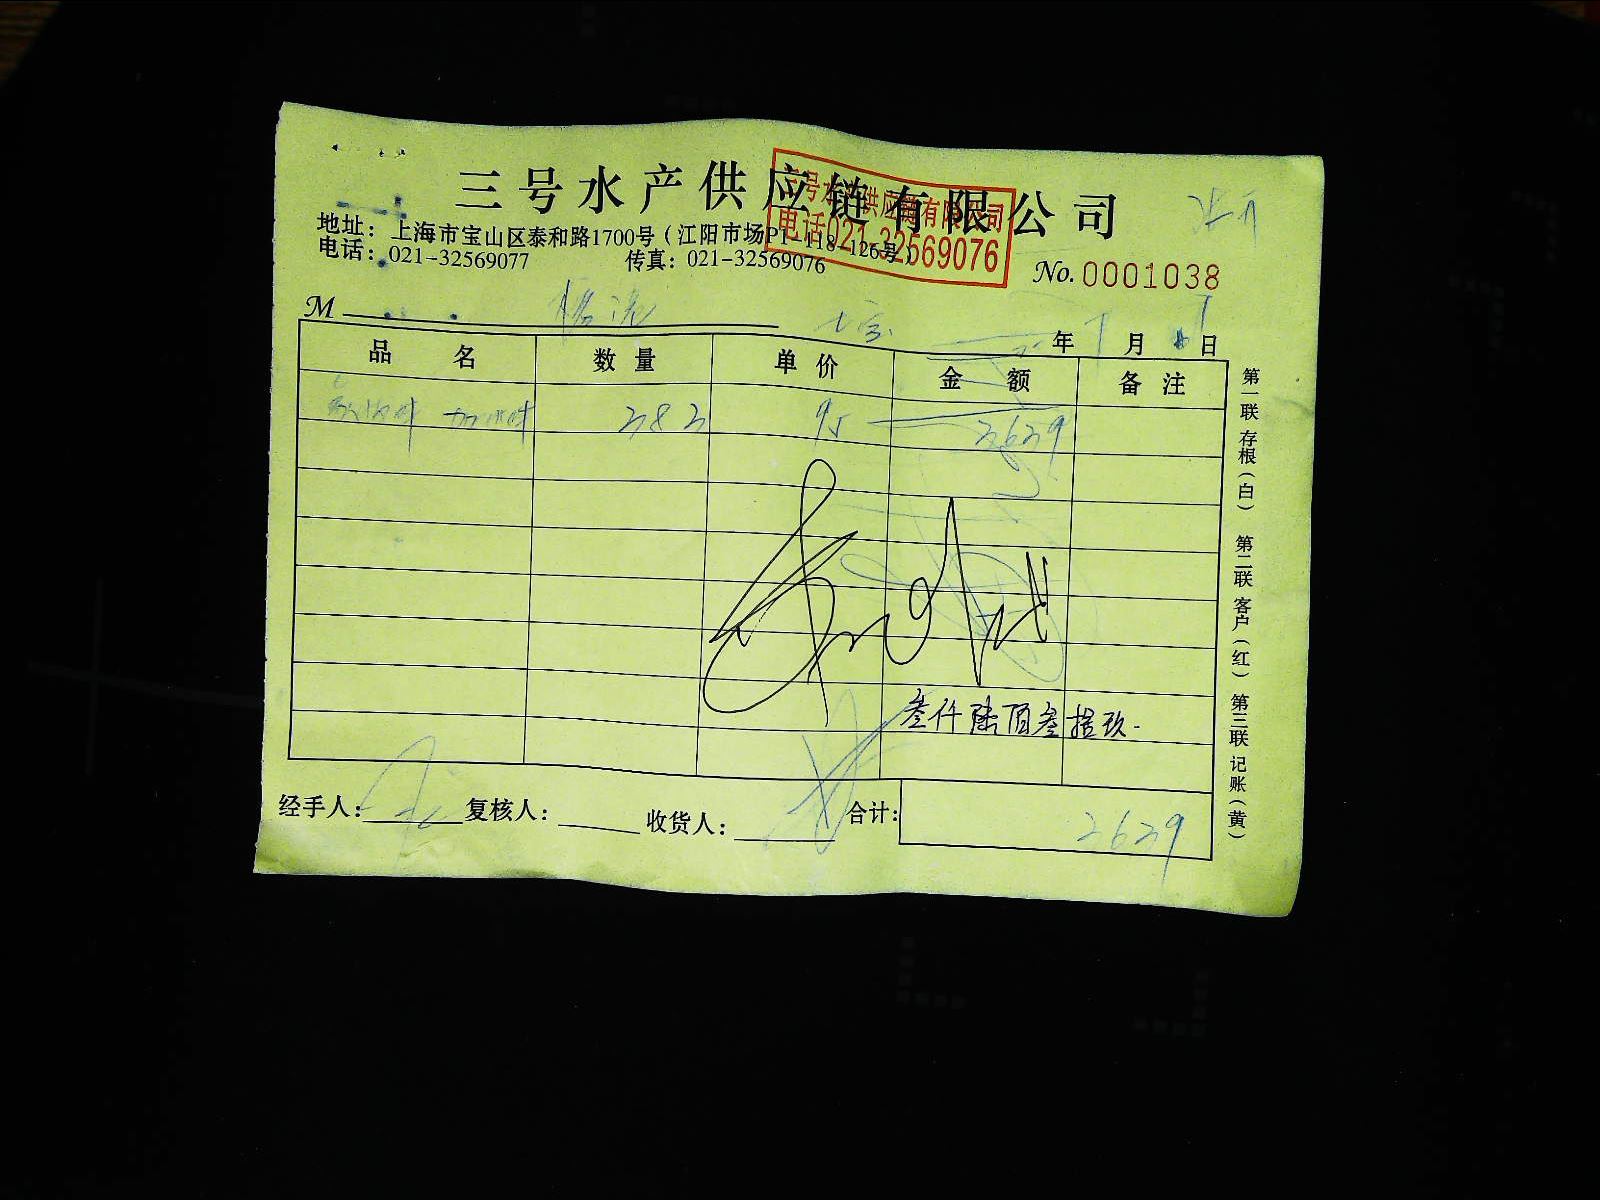 三号水产供应链有限公司
三号水产供应链有限公司
电话021-32569076
地址：上海市宝山区泰和路1700号（江阳市场P1-118-126号）
电话：021-32569077 传真：021-32569076
No. 0001038
M 年 月 日
品 名 数 量 单 价 金 额 备 注
383 95 3639
叁仟陆佰叁拾玖
经手人： 复核人： 收货人： 合计： 3639
第一联 存根（白） 第二联 客户（红） 第三联 记账（黄）